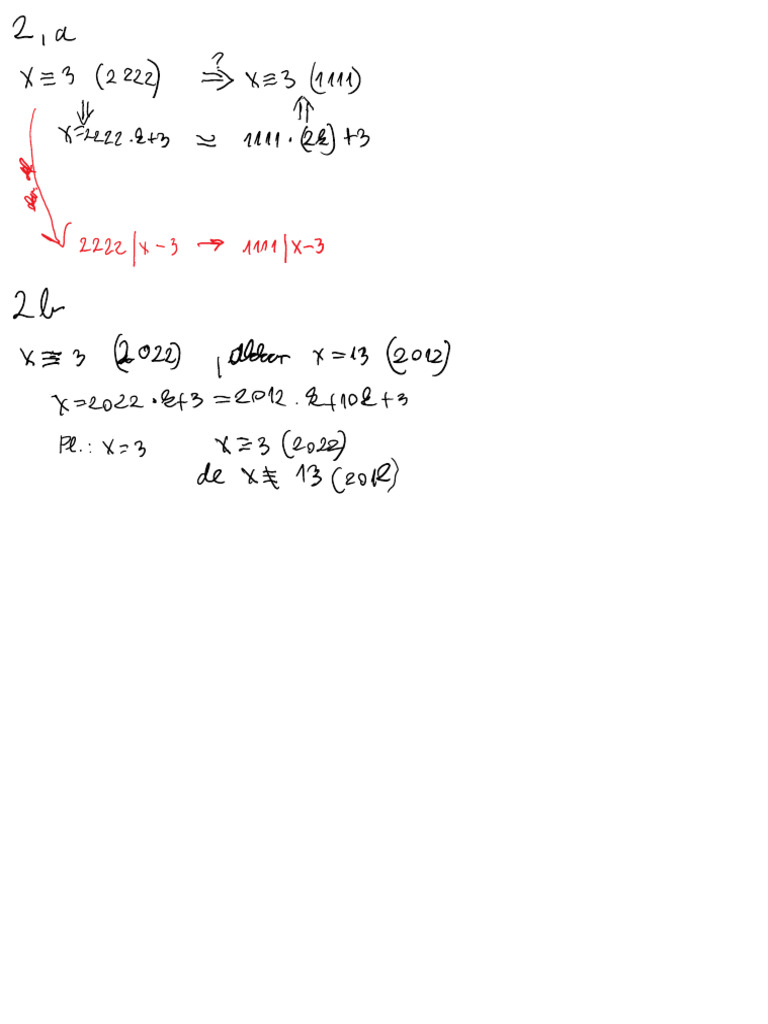 2, a
x ≡ 3 (2222) ?⇒ x ≡ 3 (1111)
⇓ ⇑
x=2222·k+3 = 1111·(2k)+3
2222|x-3 → 1111|x-3
2b
x ≡ 3 (2022) , akkor x=13 (2012)
x=2022·k+3=2012·k+10k+3
Pl.: x=3 x≡3 (2022)
de x≢ 13 (2012)